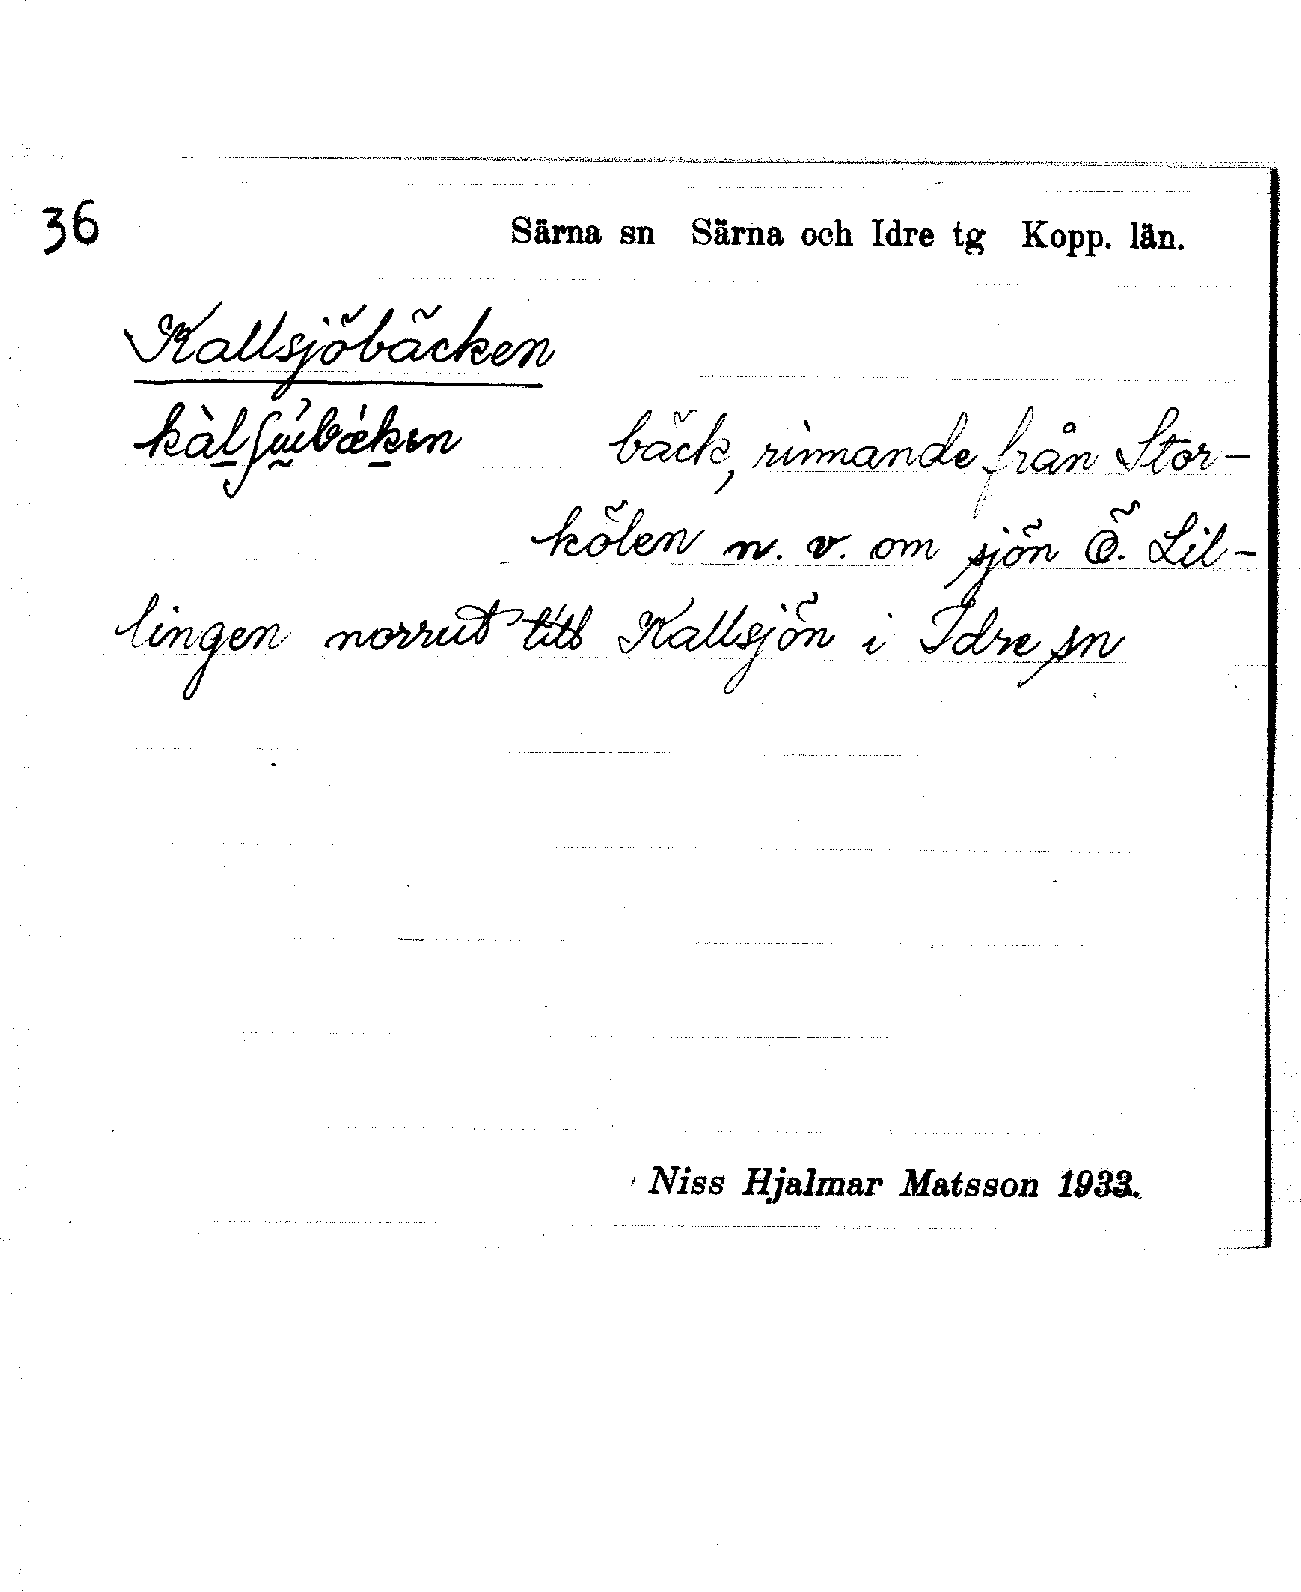 36
Särna sn Särna och Idre tg Kopp. län.
Kallsjöbäcken
bäck, rinnande från Stor-
kölen n. v. om sjön Ö. Lil-
lingen norrut till Kallsjön i Idre sn
Niss Hjalmar Matsson 1933.